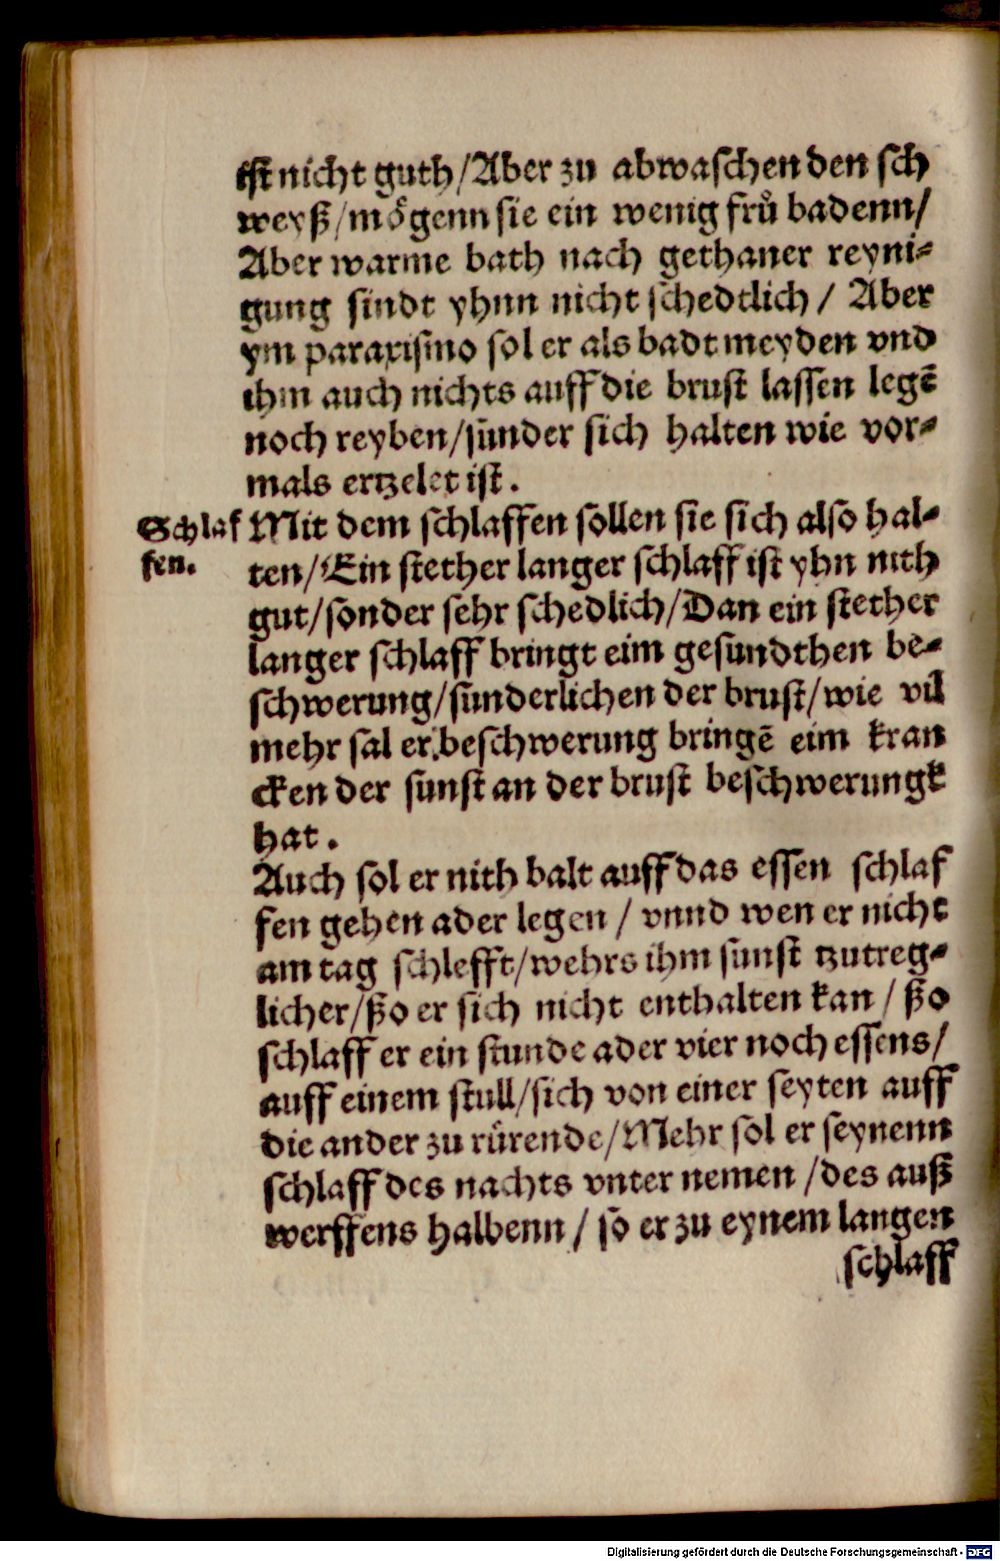 iſt nicht guth/Aber zu abwaſchen den ſch
weyß/moͤgenn ſie ein wenig fruͦ badenn/
Aber warme bath nach gethaner reyni⸗
gung ſindt yhnn nicht ſchedtlich / Aber
ym paraxiſmo ſol er als badt meyden vnd
ihm auch nichts auff die bruſt laſſen legē
noch reyben/ſunder ſich halten wie vor⸗
mals ertzelet iſt.
Schlaf
fen.
Mit dem ſchlaffen ſollen ſie ſich alſo hal⸗
ten/Ein ſtether langer ſchlaff iſt yhn nith
gut/ſonder ſehr ſchedlich/Dan ein ſtether
langer ſchlaff bringt eim geſundthen be⸗
ſchwerung/ſunderlichen der bruſt/wie vil
mehr ſal er beſchwerung bringē eim kran
cken der ſunſt an der bruſt beſchwerungk
hat.
Auch ſol er nith balt auff das eſſen ſchlaf
fen gehen ader legen / vnnd wen er nicht
am tag ſchlefft/wehrs ihm ſunſt tzutreg⸗
licher/ßo er ſich nicht enthalten kan / ßo
ſchlaff er ein ſtunde ader vier noch eſſens/
auff einem ſtull/ſich von einer ſeyten auff
die ander zu ruͤrende/Mehr ſol er ſeynenn
ſchlaff des nachts vnter nemen /des auß
werffens halbenn / ſo er zu eynem langen
ſchlaff
Digitalisierung gefördert durch die Deutsche Forschungsgemeinschaft - DFG